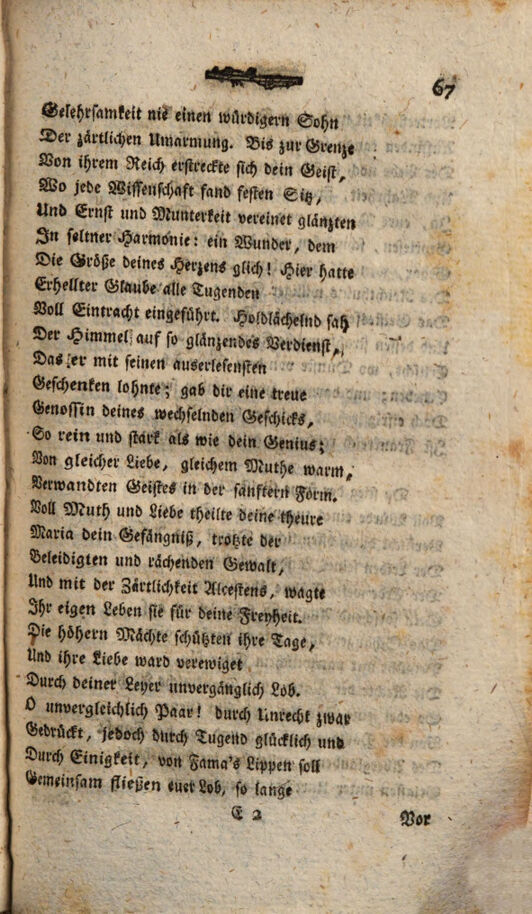 67
Gelehrsamkeit nie einen würdigern Sohn
Der zärtlichen Umarmung. Bis zur Grenze
Von ihrem Reich erstreckte sich dein Geist,
Wo jede Wissenschaft fand festen Sitz,
Und Ernst und Munterkeit vereinet glänzten
In seltner Harmonie: ein Wunder, dem
Die Größe deines Herzens glich! Hier hatte
Erhellter Glaube alle Tugenden
Voll Eintracht eingeführt. Holdlächelnd sah
Der Himmel auf so glänzendes Verdienst,
Das er mit seinen auserlesensten
Geschenken lohnte; gab dir eine treue
Genossin deines wechselnden Geschicks,
So rein und stark als wie dein Genius;
Von gleicher Liebe, gleichem Muthe warm,
Verwandten Geistes in der sanftern Form.
Voll Muth und Liebe theilte deine theure
Maria dein Gefängniß, trotzte der
Beleidigten und rächenden Gewalt,
Und mit der Zärtlichkeit Alcestens, wagte
Ihr eigen Leben sie für deine Freyheit.
Die höhern Mächte schützten ihre Tage,
Und ihre Liebe ward verewiget
Durch deiner Leyer unvergänglich Lob.
O unvergleichlich Paar! durch Unrecht zwar
Gedrückt, jedoch durch Tugend glücklich und
Durch Einigkeit, von Fama's Lippen soll
Gemeinsam fließen euer Lob, so lange
E 2
Vor